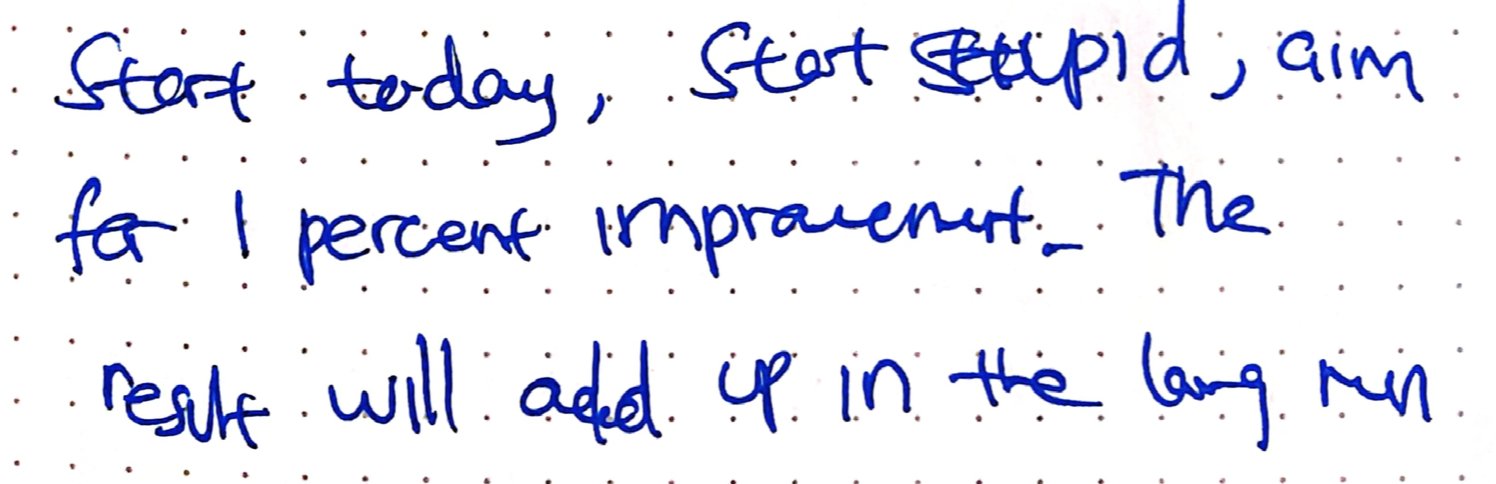 Start today, Start stupid, aim
for 1 percent improvement. The
result will add up in the long run